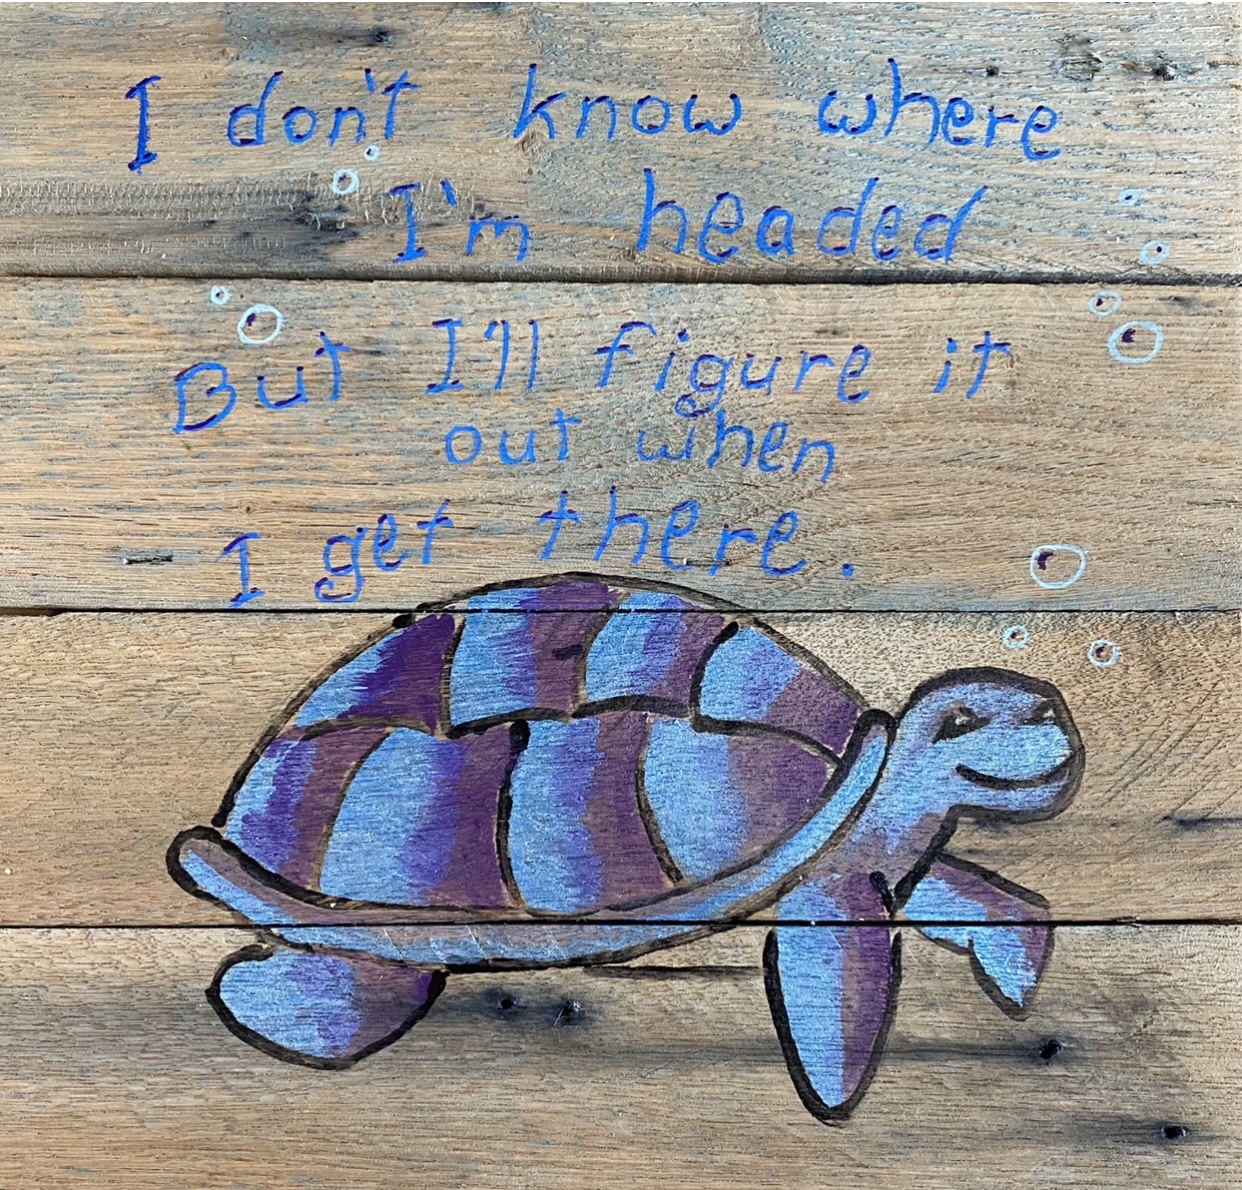 I don't know where
I'm headed
But I'll figure it
out when
I get there.